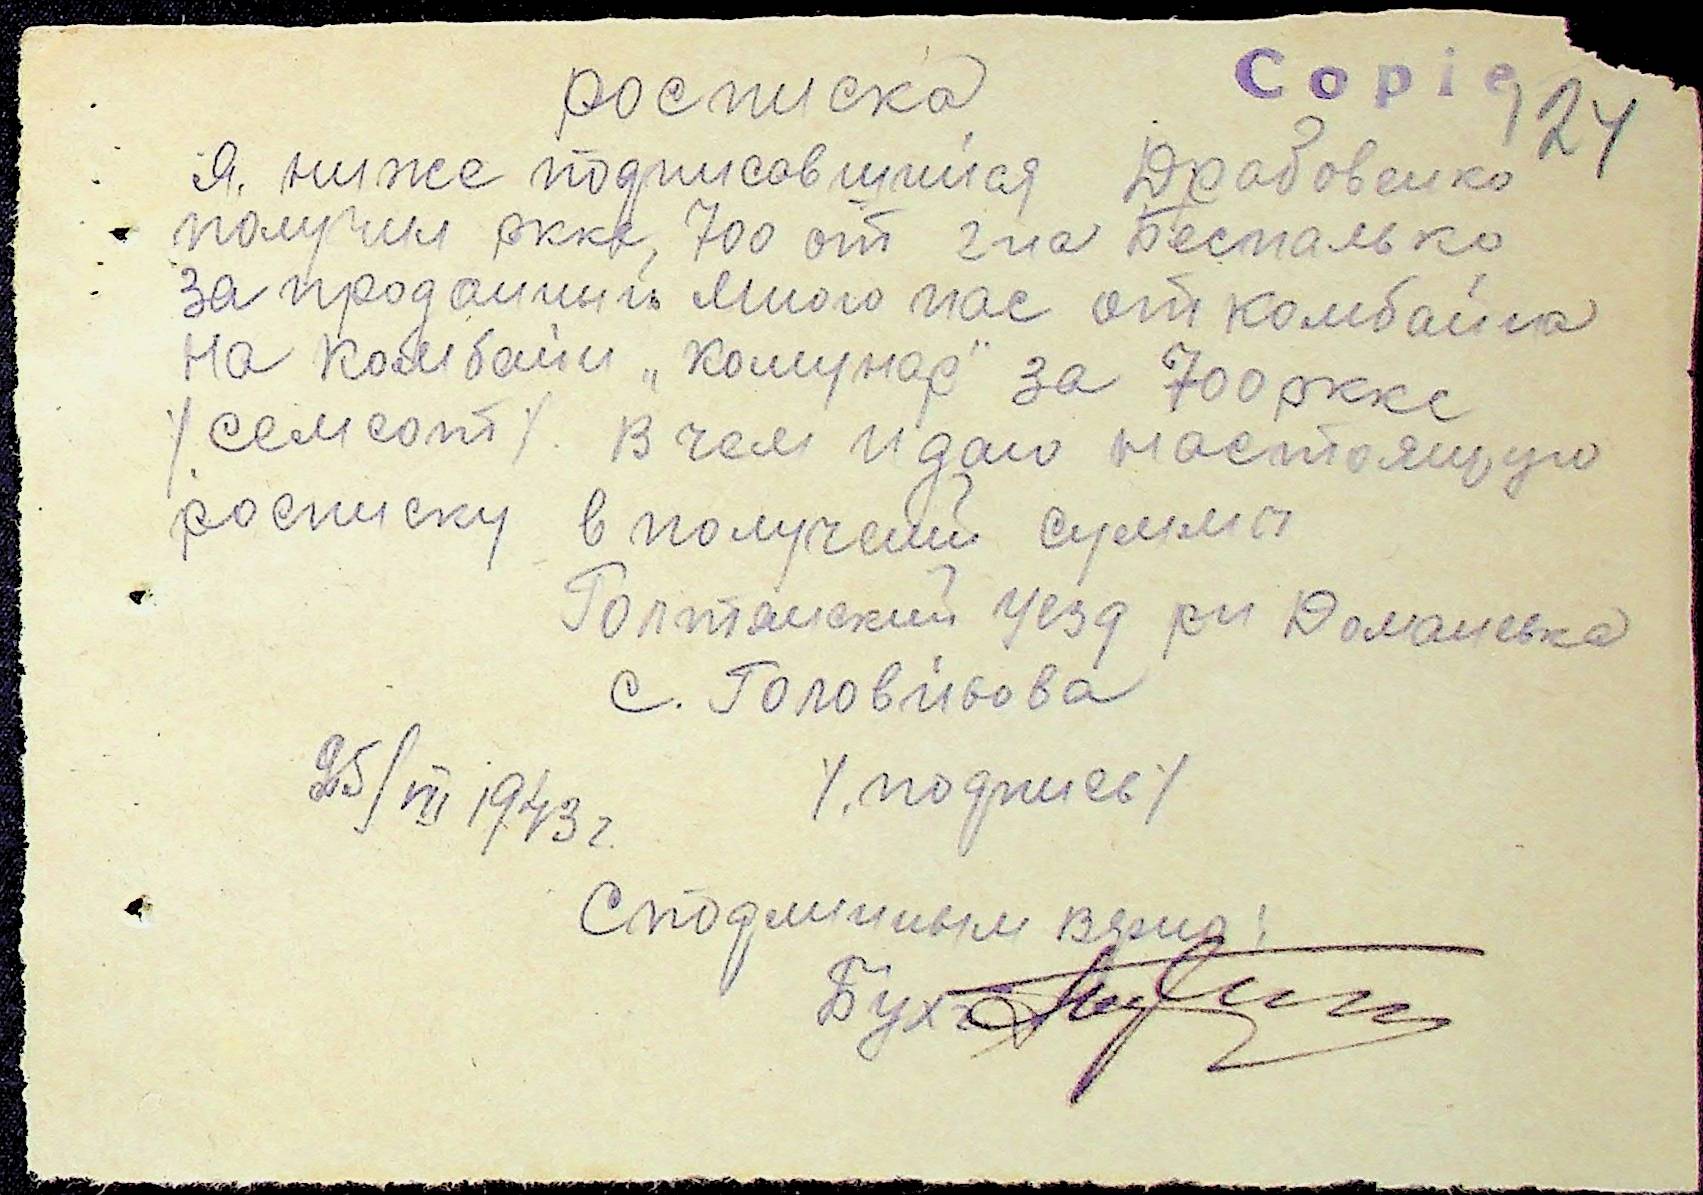 Copie
24
росписка
Я. ниже подписавшийся Драбовенко
получил рккс, 700 от г-на Беспалько
за проданный мною пас от комбайна
на комбайн „комунар" за 700 рккс
/.семсот/. В чем и даю настоящую
росписку в получений суммы
Голтянский уезд рн Доманевка
с. Головньова
25/VIII 1943 г.
/.подпись/
С подлинным вярно:
Бух.